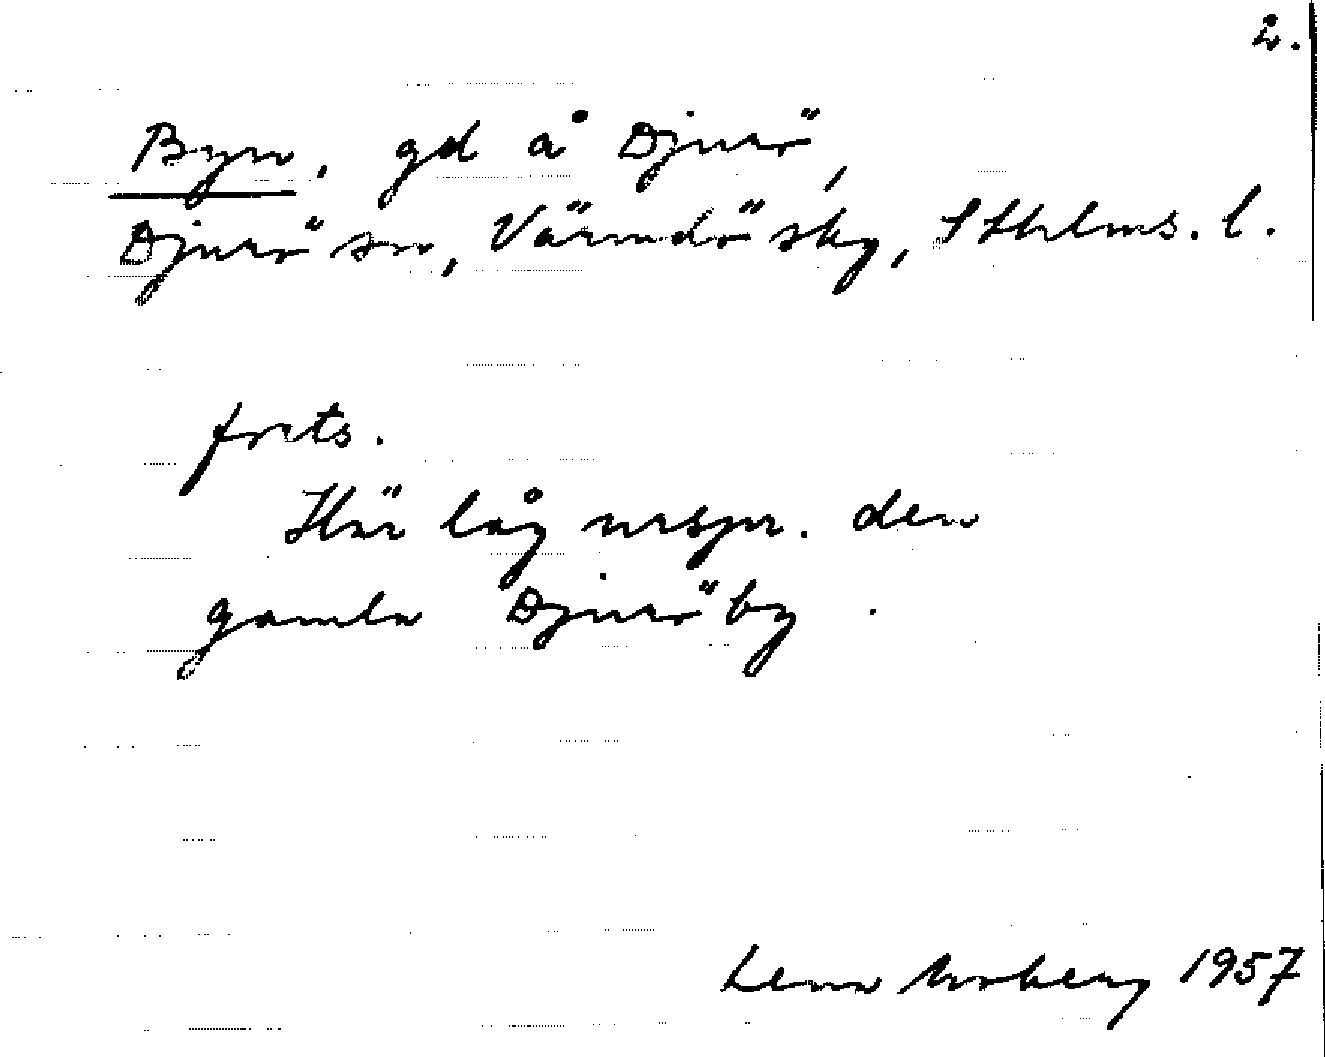 2.
Byn, gd å Djurö,
Djurö sn, Värmdö sky, Sthlms. l.
forts.
Här låg urspr. den
gamla Djuröby.
Lena Moberg 1957